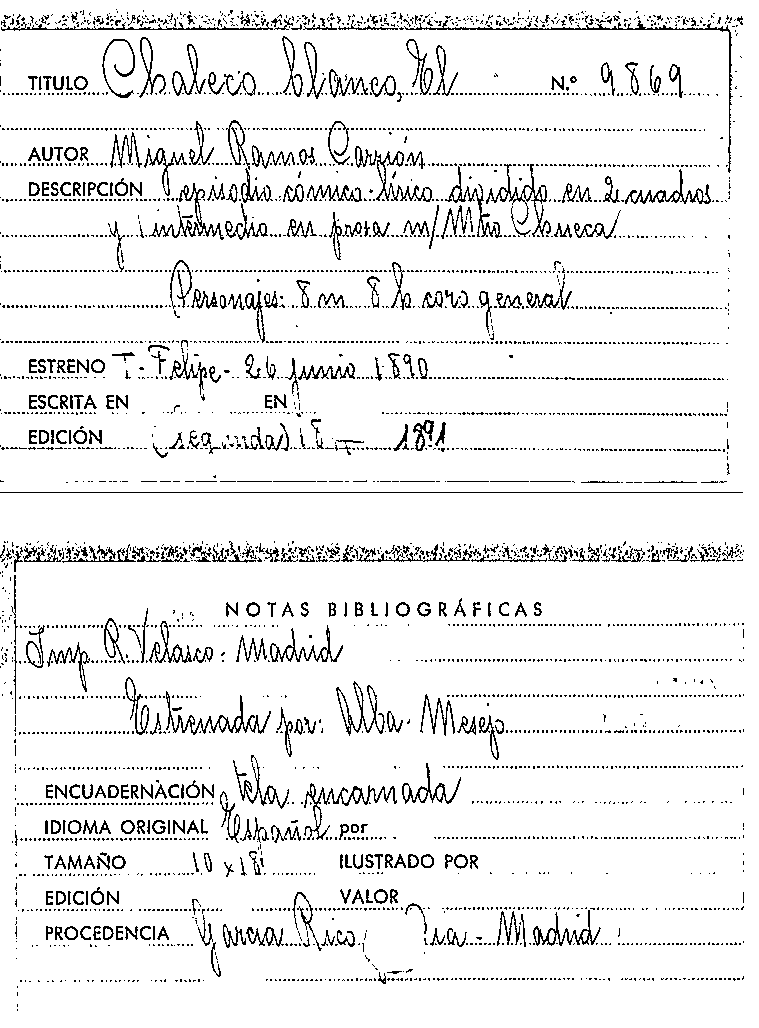 TITULO Chaleco blanco, El N.º 9869
AUTOR Miguel Ramos Carrión
DESCRIPCIÓN 1 episodio cómico-lírico dividido en 2 cuadros
y 1 intermedio en prosa m/ Mtro Chueca
Personajes: 8 m 8 h coro general
ESTRENO T. Felipe - 26 junio 1890
ESCRITA EN EN
EDICIÓN (segunda) 1891
NOTAS BIBLIOGRÁFICAS
Imp. R. Velasco - Madrid
Estrenada por: Alba - Mesejo
ENCUADERNACIÓN tela encarnada
IDIOMA ORIGINAL Español por
TAMAÑO 10 x 18 ILUSTRADO POR
EDICIÓN VALOR
PROCEDENCIA García Rico, - Madrid